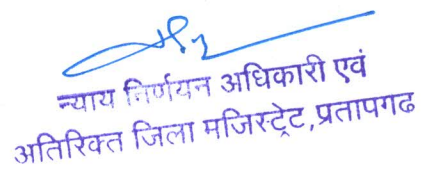 न्याय निर्णयन अधिकारी एवं
अतिरिक्त जिला मजिस्ट्रेट,प्रतापगढ